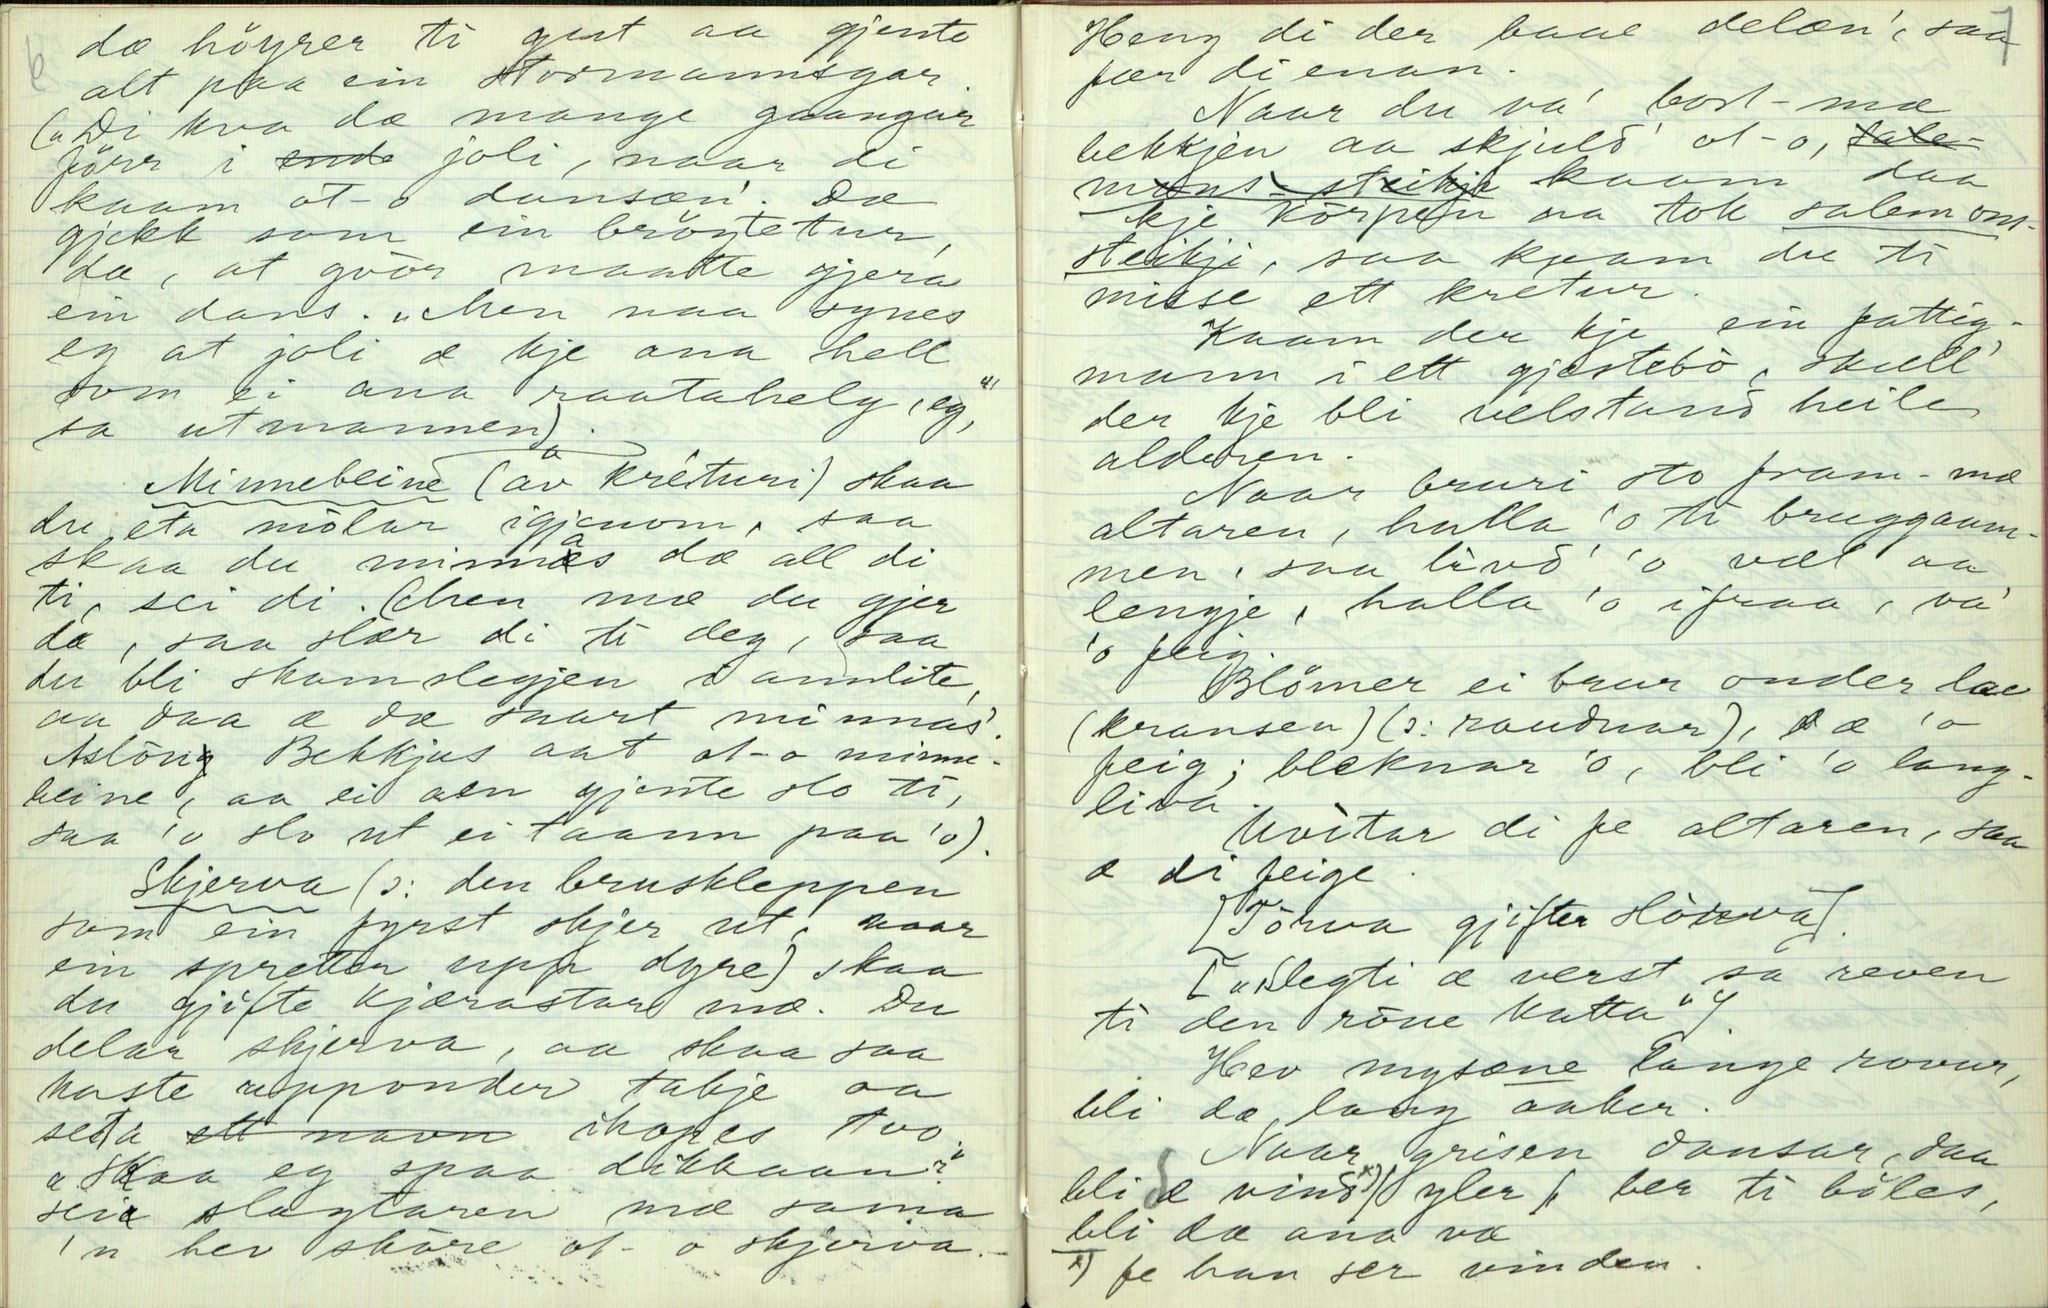 6
dæ höyrer ti gut aa gjente
alt paa ein stormannsgar.
(„Di hva dæ mange gaangar
förr i ende joli, naar di
kaam ot-o dansæn'. Dæ
gjekk som ein bröytetur,
dæ, at gvör maatte gjera
ein dans. „Men naa synes
eg at joli æ kje ana hell
som ei ana raatahelg, eg,"
sa utmannen).
Minnebeine (av krêturi) skaa
du eta mölar igjenom, saa
skaa du minnas dæ all di
ti, sei di. (Men mæ du gjer
dæ, saa slær di ti deg, saa
du bli skamslegjen i annlite,
aa daa æ dæ snart minnas'.
Aslöug Bekkjus aat ot-o minne-
beine, aa ei aen gjente slo ti,
saa 'o slo ut ei taann paa 'o).
Skjerva (ɔ: den bruskleppen
som ein fyrst skjer ut, naar
ein spretter upp dyre) skaa
du gjifte kjærastar mæ. Du
delar skjerva, aa skaa saa
kaste upponder takje aa
seta ett navn ihopes tvo.
„Skaa eg spaa dikkaan?"
seie slagtaren mæ sama
'n hev skôre ot-o skjerva.
7
Heng di der baae delæn', saa
fær di enan.
Naar du va' bort-mæ
bekkjen aa skjuld' ot-o, sale-
mons steikje kaam daa
kje körpen aa tok salemons-
steikji, saa kaam du ti
misse ett krêtur.
Kaam der kje ein fattig-
mann i ett gjestebö, skull'
der kje bli velstand heile
alderen.
Naar bruri sto fram-mæ
altaren, halla 'o ti bruggaam-
men, saa livd' 'o væl aa
lengje, halla 'o ifraa, va'
'o feig.
Blömer ei brur onder lae
(kransen) (ɔ: raudnar), æ 'o
feig; bleknar 'o, bli 'o lang-
liva.
Kvitar di fe altaren, saa
æ di feige.
[Törva gjifter slörva].
[„Slegti æ verst" sa reven
ti den röue katta"].
Hev mysæne lange rovur,
bli dæ lang aaker.
Naar grisen dansar, daa
bli dæ vind x) yler, ber ti böles,
bli dæ ana væ
x) fe han ser vinden.